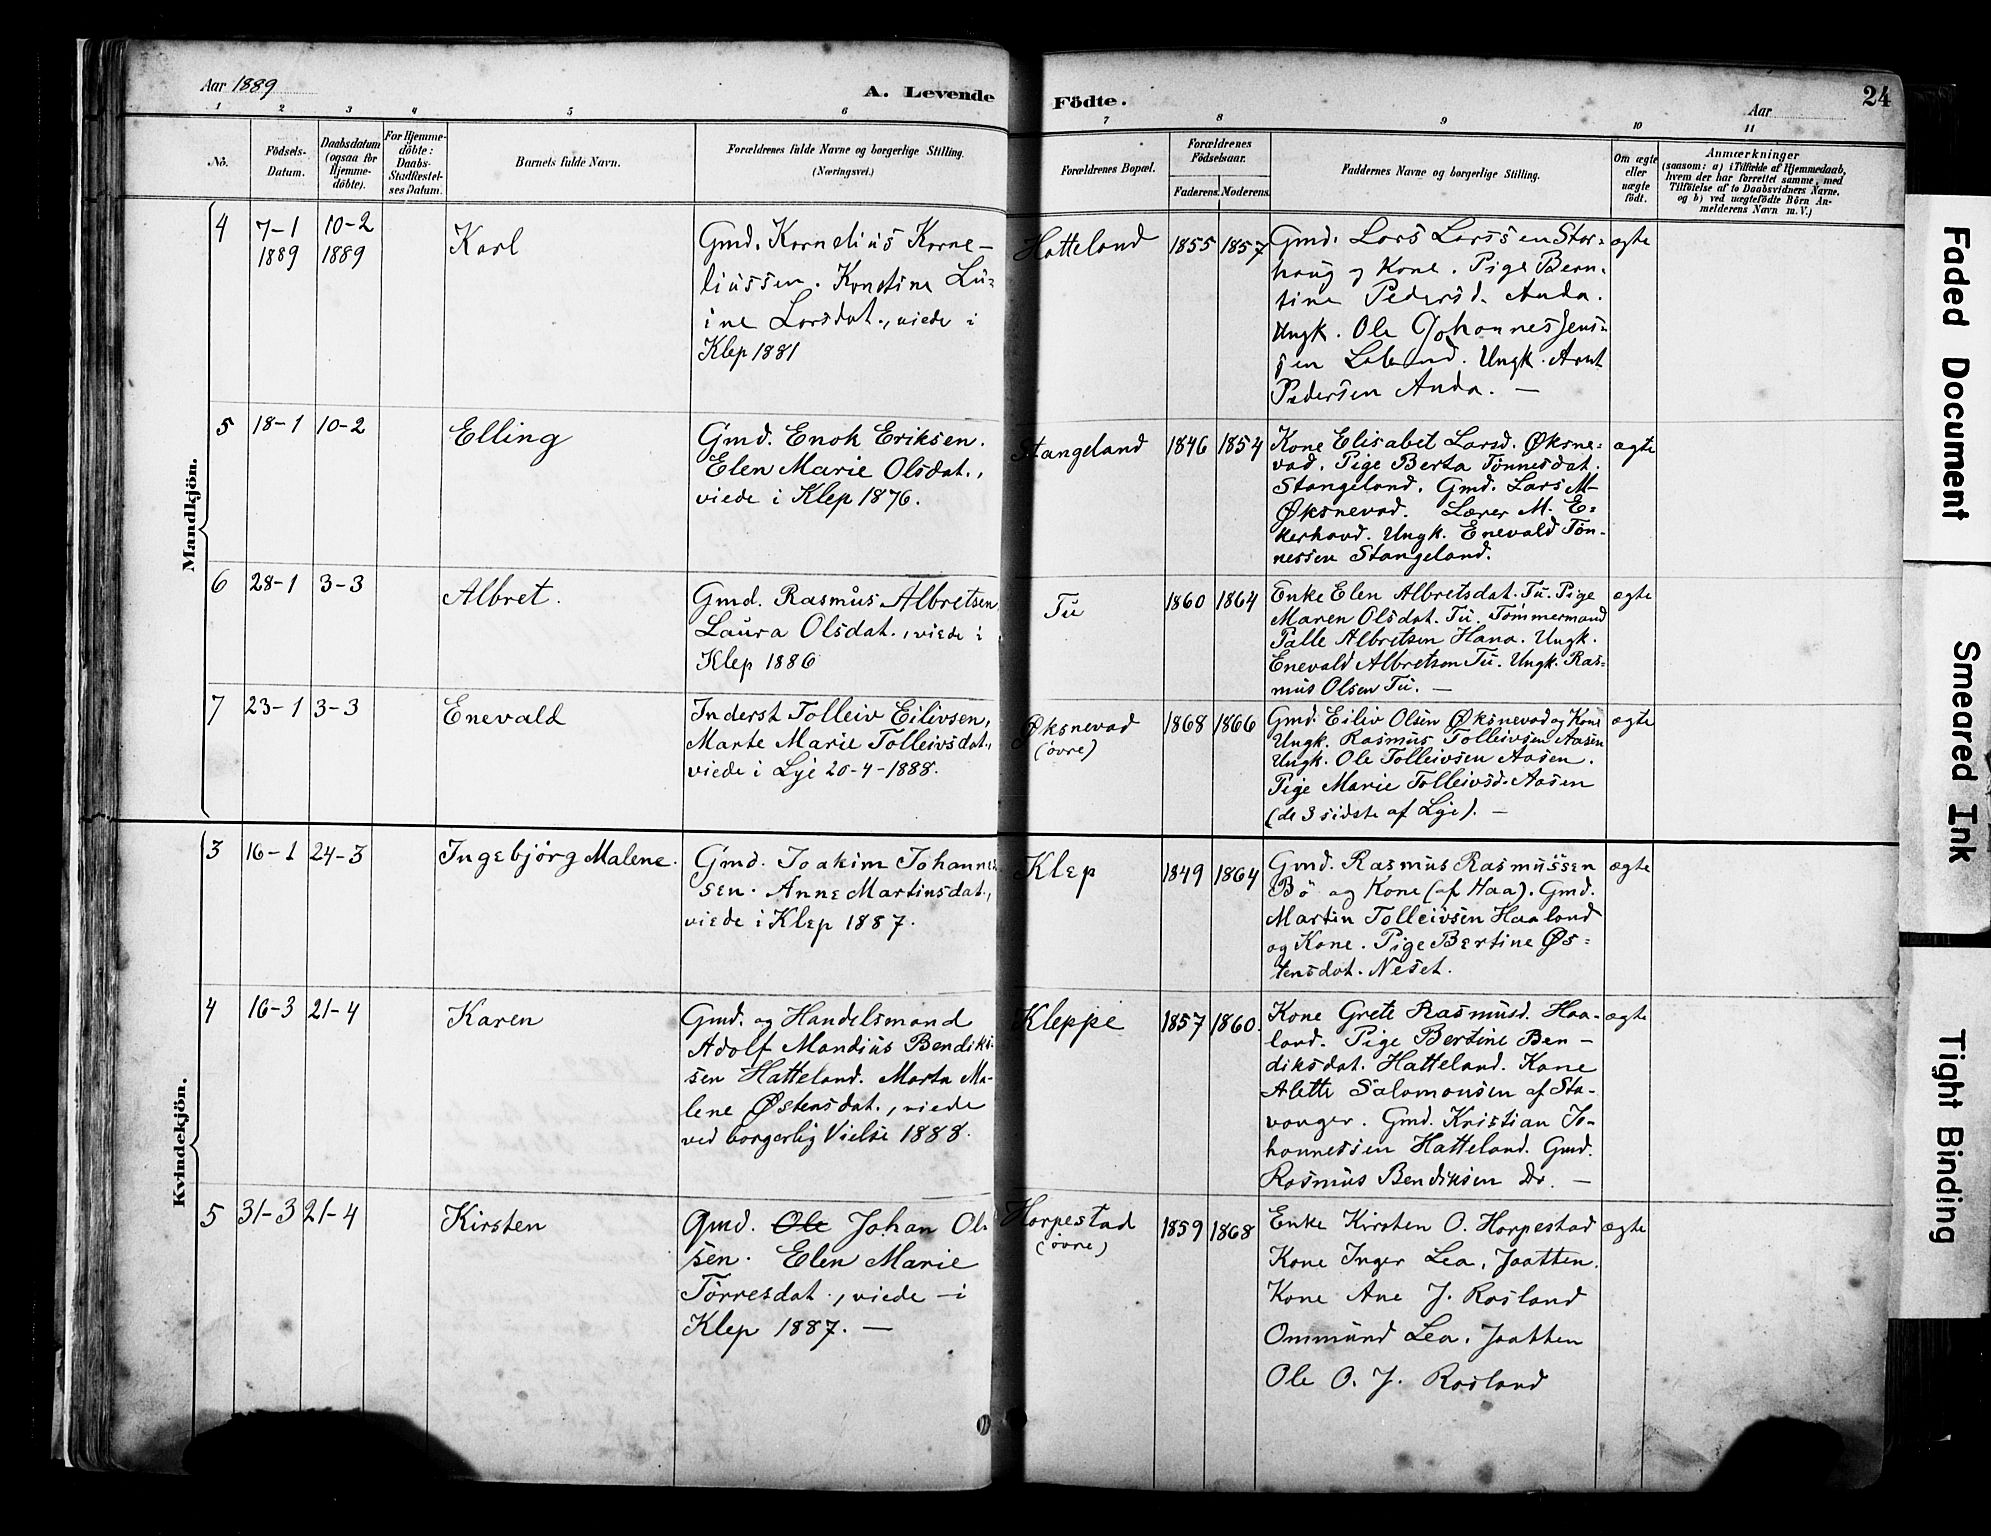 Aar 1889
A. Levende
Födte.
Aar
24
1 2 3 4 5 6 7 8 9 10 11
No.
Födsels-
Datum.
Daabsdatum
(ogsaa for
Hjemme-
döbte).
For Hjemme-
döbte:
Daabs-
Stadfæstel-
ses Datum.
Barnets fulde Navn.
Forældrenes fulde Navne og borgerlige Stilling.
(Næringsvei.)
Forældrenes Bopæl.
Forældrenes
Födselsaar.
Faderens. Moderens.
Faddernes Navne og borgerlige Stilling.
Om ægte
eller
uægte
födt.
Anmærkninger
(saasom: a) i Tilfælde af Hjemmedaab,
hvem der har forrettet samme, med
Tilföielse af to Daabsvidners Navne,
og b) ved uægtefödte Börn An-
melderens Navn m. V.)
Mandkjön.
4
7-1
1889
10-2
1889
Karl
Gmd. Kornelius Korne-
liussen. Konstine Lu-
ine Larsdat., viede i
Klep 1881
Hatteland
1855
1857
Gmd. Lars Larssen Stor-
haug og Kone. Pige Bern-
tine Pedersd. Anda.
Ungk. Ole Johannes Jens-
sen Laland. Ungk. Arnt
Pedersen Anda. —
ægte
5
18-1
10-2
Elling
Gmd. Enok Eriksen.
Elen Marie Olsdat.,
viede i Klep 1876.
Stangeland
1846
1854
Kone Elisabet Larsd. Øksne-
vad. Pige Berta Tönnesdat.
Stangeland. Gmd. Lars M-
Øksnevad. Lærer M. E-
kerhovd. Ungk. Enevald Tön-
nessen Stangeland.
ægte
6
28-1
3-3
Albret.
Gmd. Rasmus Albretsen
Laura Olsdat., viede i
Klep 1886
Tu
1860
1864
Enke Elen Albretsdat. Tu. Pige
Maren Olsdat. Tu. Tömmermand
Palle Albretsen Hana. Ungk.
Enevald Albretsen Tu. Ungk. Ras-
mus Olsen Tu. —
ægte
7
23-1
3-3
Enevald
Inderst Tolleiv Eilivsen,
Marte Marie Tolleivsdat.,
viede i Lye 20-4-1888.
Øksnevad
(övre)
1868
1866
Gmd. Eiliv Olsen Øksnevad og Kone
Ungk. Rasmus Tolleivsen Aasen
Ungk. Ole Tolleivsen Aasen.
Pige Marie Tolleivsd. Aasen
(de 3 sidste af Lye). —
ægte
Kvindekjön.
3
16-1
24-3
Ingebjörg Malene.
Gmd. Joakim Johannes-
sen. Anne Martinsdat.,
viede i Klep 1887.
Klep
1849
1864
Gmd. Rasmus Rasmussen
Bö og Kone (af Haa). Gmd.
Martin Tolleivsen Haaland
og Kone. Pige Bertine Øs-
tensdat. Neset.
ægte
4
16-3
21-4
Karen
Gmd. og Handelsmand
Adolf Mandius Bendik-
sen Hatteland. Marta Ma-
lene Østensdat., viede
ved borgerlig Vielse 1888.
Kleppe
1857
1860.
Kone Grete Rasmusd. Haa-
land. Pige Bertine Ben-
diksdat. Hatteland. Kone
Alette Salomonsen af Sta-
vanger. Gmd. Kristian Jo-
hannessen Hatteland. Gmd.
Rasmus Bendiksen Do. —
ægte
5
31-3
21-4
Kirsten
Gmd. Ole Johan Ol-
sen. Elen Marie
Törresdat., viede i
Klep 1887. —
Horpestad
(övre)
1859
1868
Enke Kirsten O. Horpestad
Kone Inger Lea, Jaatten.
Kone Ane J. Rosland
Ommund Lea, Jaatten
Ole O. J. Rosland
ægte
Faded Document
Smeared Ink
Tight Binding